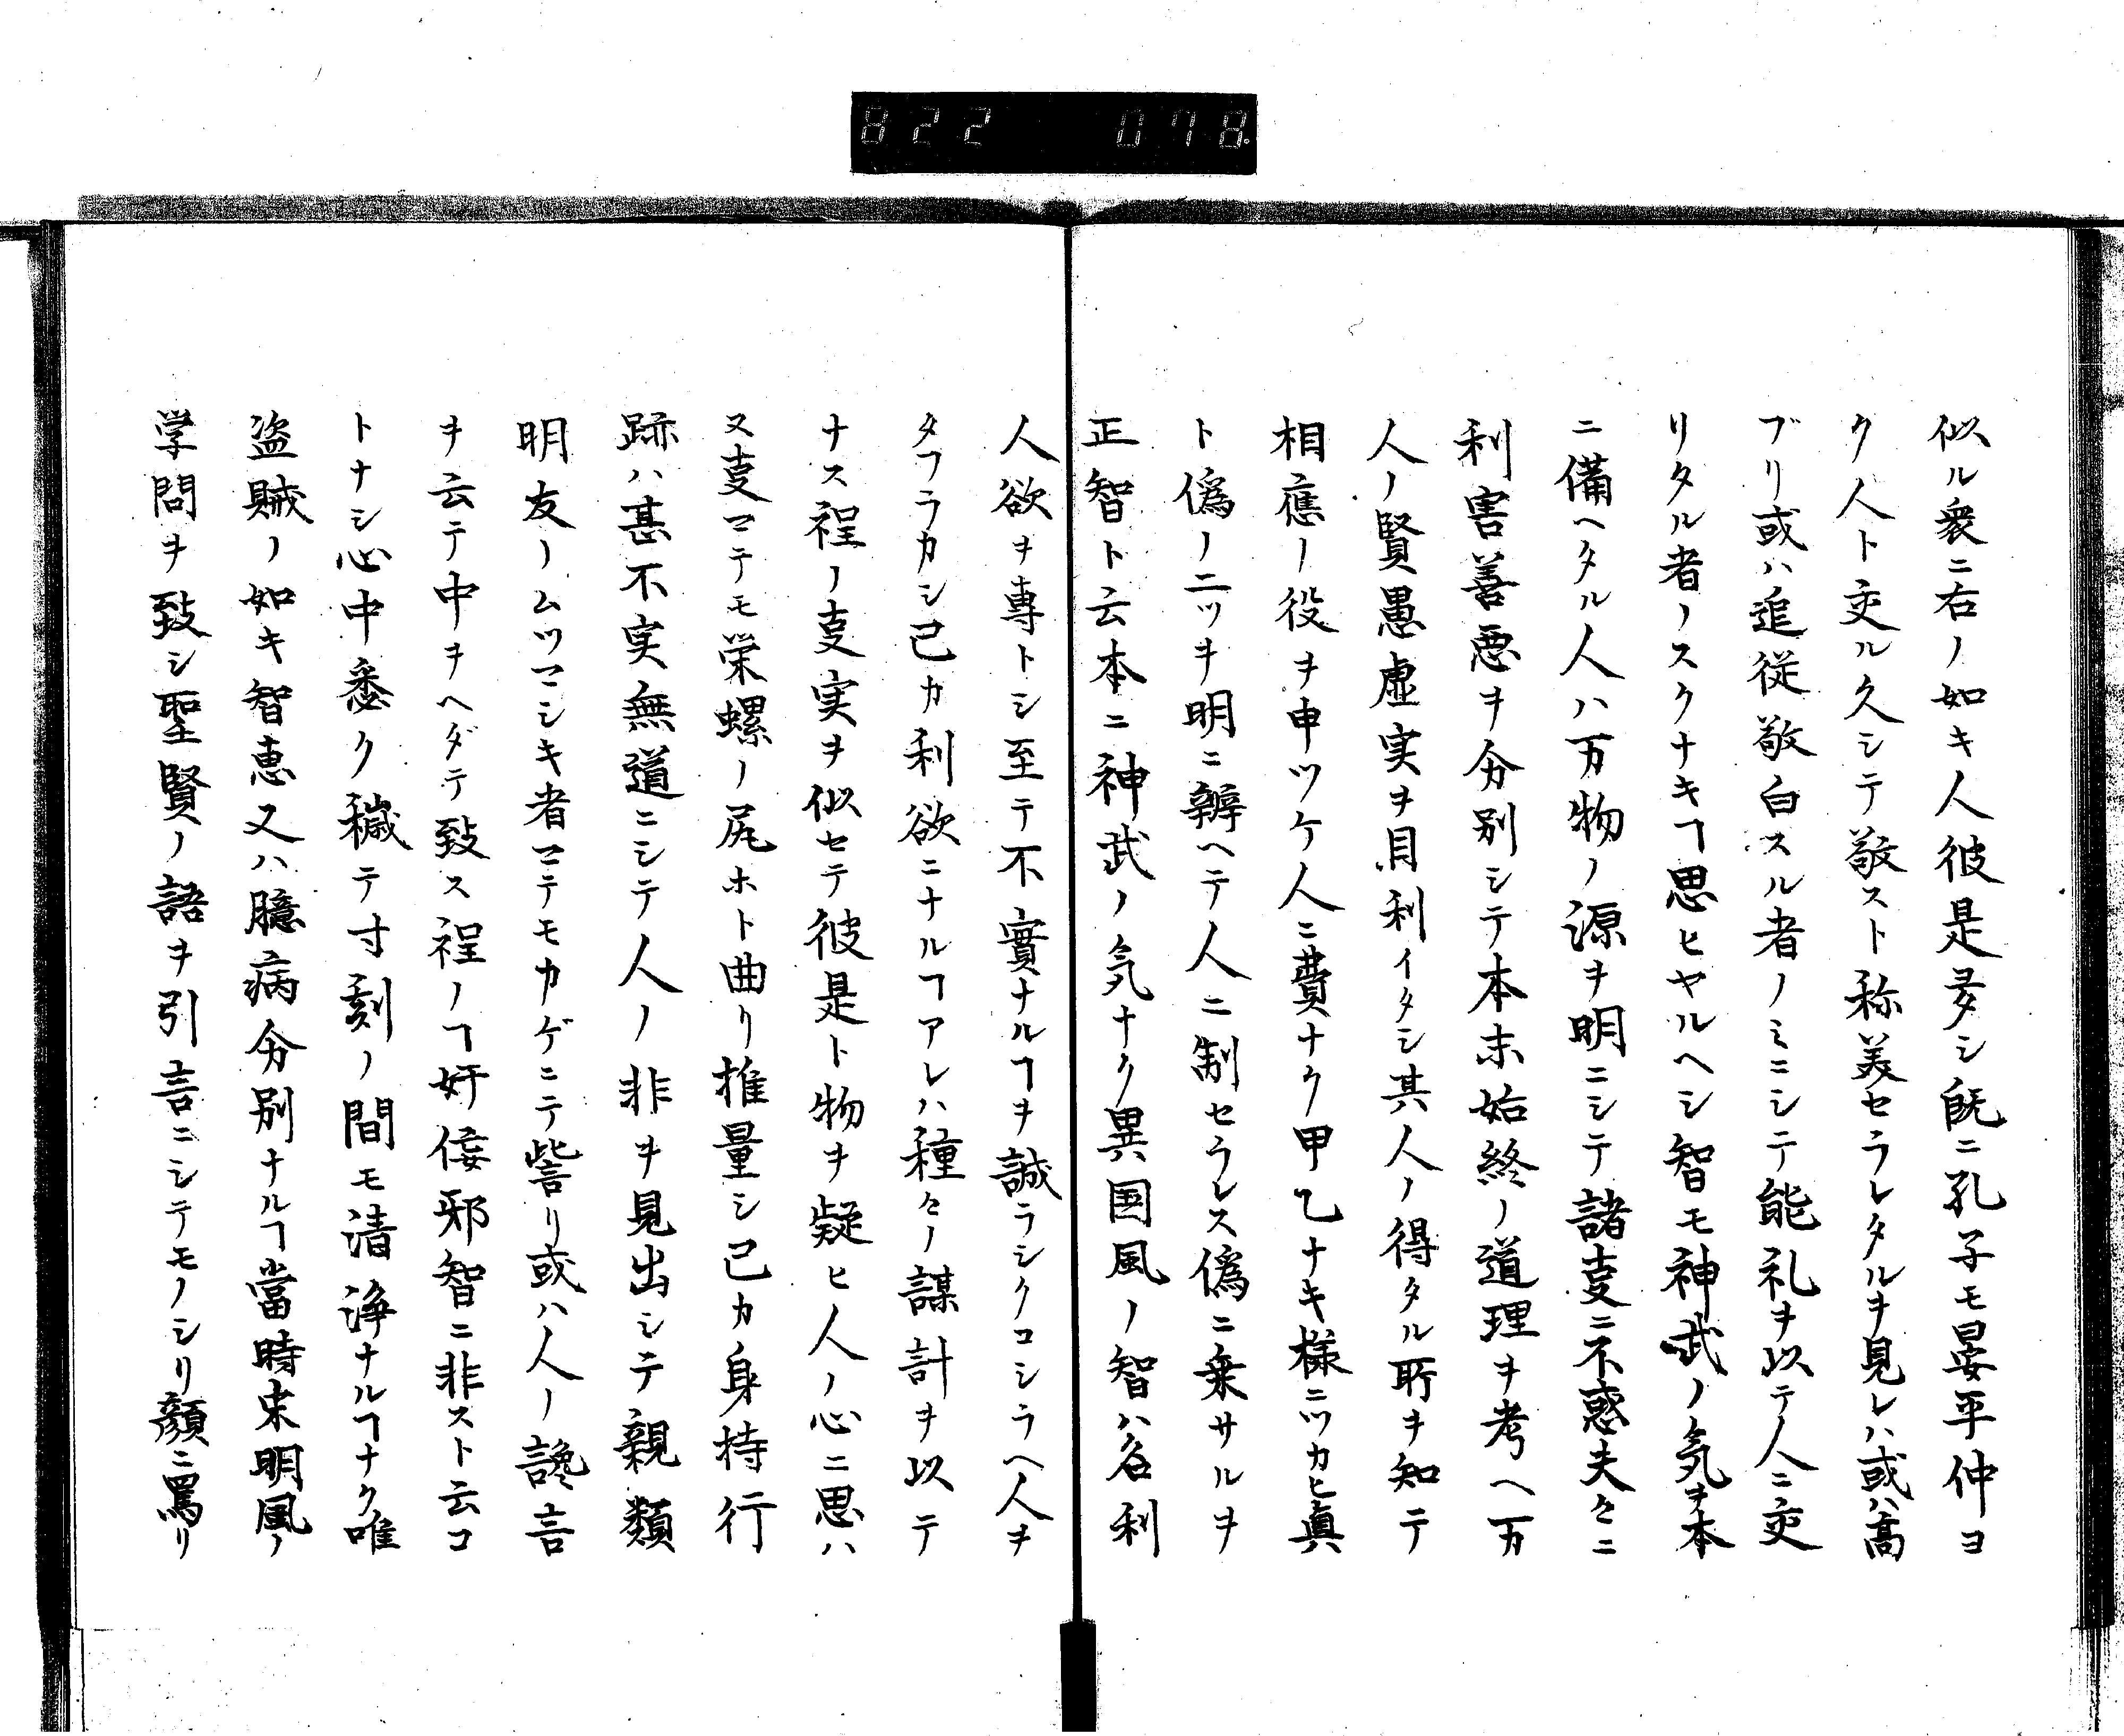 822 078.
似ル衆ニ右ノ如キ人彼是多シ既ニ孔子モ晏平仲ヨ
ク人ト交ル久シテ敬スト称美セラレタルヲ見レハ或ハ高
ブリ或ハ追従敬白スル者ノミニシテ能礼ヲ以テ人ニ交
リタル者ノスクナキヿ思ヒヤルヘシ智モ神武ノ気ヲ本
ニ備ヘタル人ハ万物ノ源ヲ明ニシテ諸叓ニ不惑夫々ニ
利害善悪ヲ分別シテ本末始終ノ道理ヲ考ヘ万
人ノ賢愚虚実ヲ目利イタシ其人ノ得タル所ヲ知テ
相應ノ役ヲ申ツケ人ニ費ナク甲乙ナキ様ニツカヒ眞
ト偽ノ二ツヲ明ニ辨ヘテ人ニ制セラレス偽ニ乗サルヲ
正智ト云本ニ神武ノ気ナク異国風ノ智ハ名利
人欲ヲ専トシ至テ不實ナルヿヲ誠ラシクコシラヘ人ヲ
タフラカシ己カ利欲ニナルヿアレハ種々ノ謀計ヲ以テ
ナス程ノ叓実ヲ似セテ彼是ト物ヲ疑ヒ人ノ心ニ思ハ
ヌ叓マテモ栄螺ノ尻ホト曲リ推量シ己カ身持行
跡ハ甚不実無道ニシテ人ノ非ヲ見出シテ親類
朋友ノムツマシキ者マテモカゲニテ訾リ或ハ人ノ讒言
ヲ云テ中ヲヘダテ致ス程ノヿ奸佞邪智ニ非スト云コ
トナシ心中悉ク穢テ寸刻ノ間モ清浄ナルヿナク唯
盗賊ノ如キ智恵又ハ臆病分別ナルヿ當時宋明風ノ
学問ヲ致シ聖賢ノ語ヲ引言ニシテモノシリ顔ニ罵リ